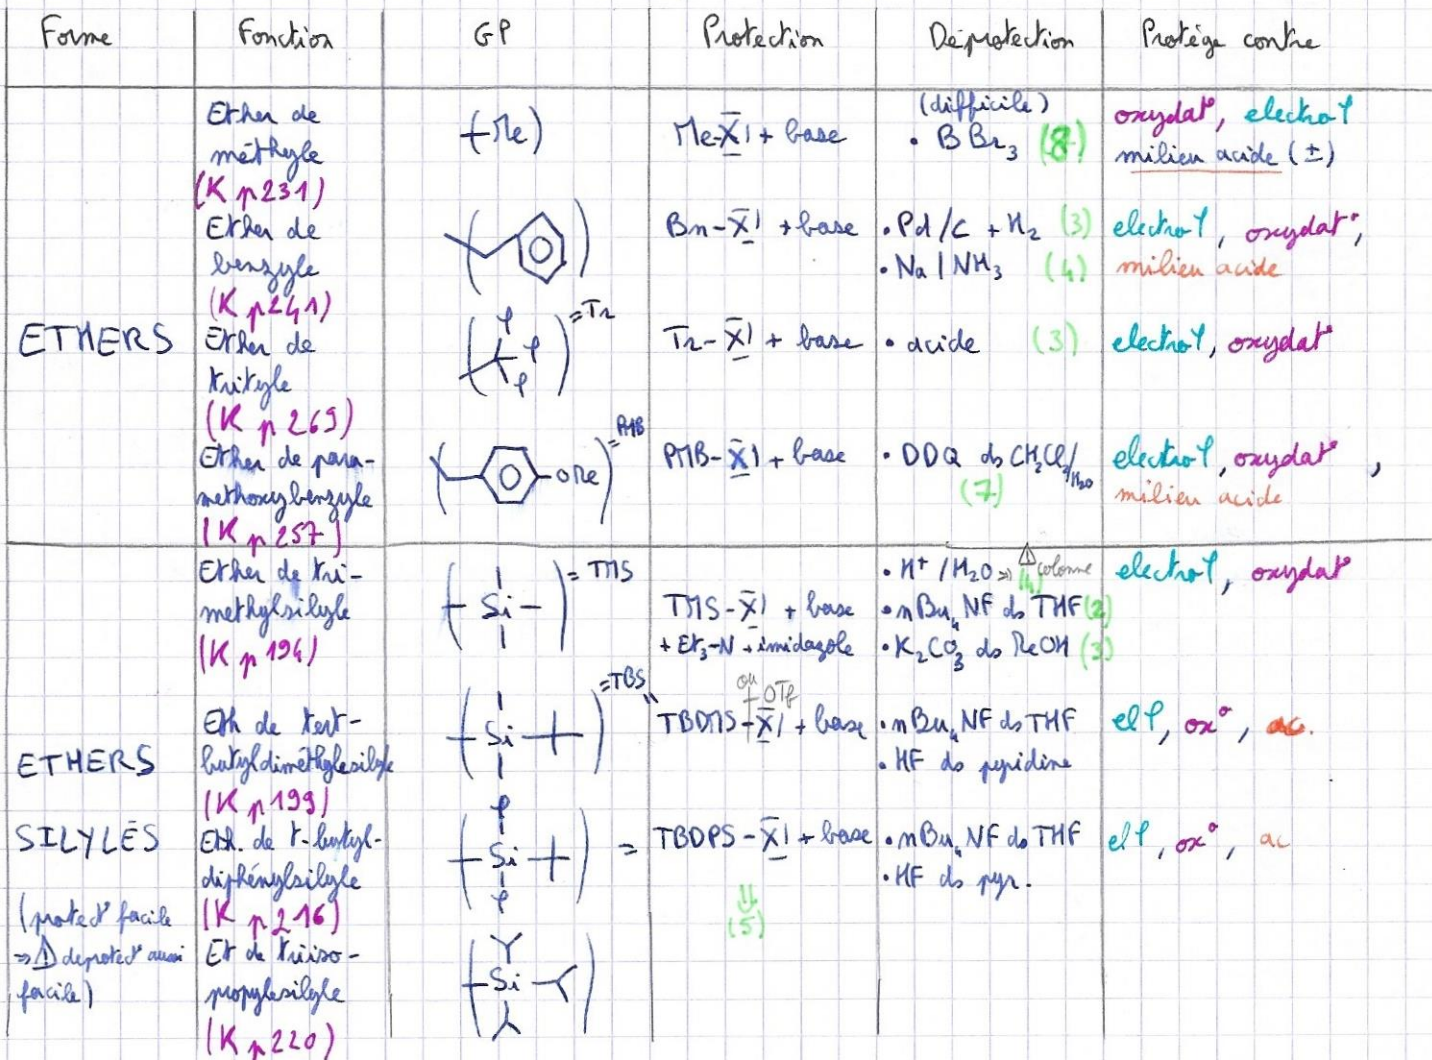 Forme Fonction GP Protection Déprotection Protège contre
ETHERS
Ether de
méthyle
(K p231)
(Me)
Me-X + base
(difficile)
• BBr3 (8)
oxydat°, electroφ
milieu acide (±)
Ether de
benzyle
(K p241)
Bn-X + base
• Pd/C + H2 (3)
• Na / NH3 (4)
electroφ, oxydat°,
milieu acide
Ether de
trityle
(K p269)
φ
φ
φ
=Tr
Tr-X + base
• acide (3)
electroφ, oxydat°
Ether de para-
methoxybenzyle
(K p257)
OMe
=PMB
PMB-X + base
• DDQ ds CH2Cl2/H2O
(7)
electroφ, oxydat°,
milieu acide
ETHERS
SILYLÉS
(protect° facile
⇒ ⚠ deprotect° aussi
facile)
Ether de tri-
méthylsilyle
(K p194)
Si
= TMS
TMS-X + base
+ Et3-N + imidazole
• H+ / H2O ⇒ ⚠ colonne
(4)
• nBu4NF ds THF (2)
• K2CO3 ds MeOH (3)
electroφ, oxydat°
Eth de tert-
butyldiméthylesilyle
(K p199)
Si
=TBS
ou
-OTf
TBDMS-X + base
• nBu4NF ds THF
• HF ds pyridine
elφ, ox°, ac.
Eth. de t-butyl-
diphénylsilyle
(K p216)
φ
Si
φ
=
TBDPS-X + base
⇓
(5)
• nBu4NF ds THF
• HF ds pyr.
elφ, ox°, ac
Et de triiso-
propylesilyle
(K p220)
Si